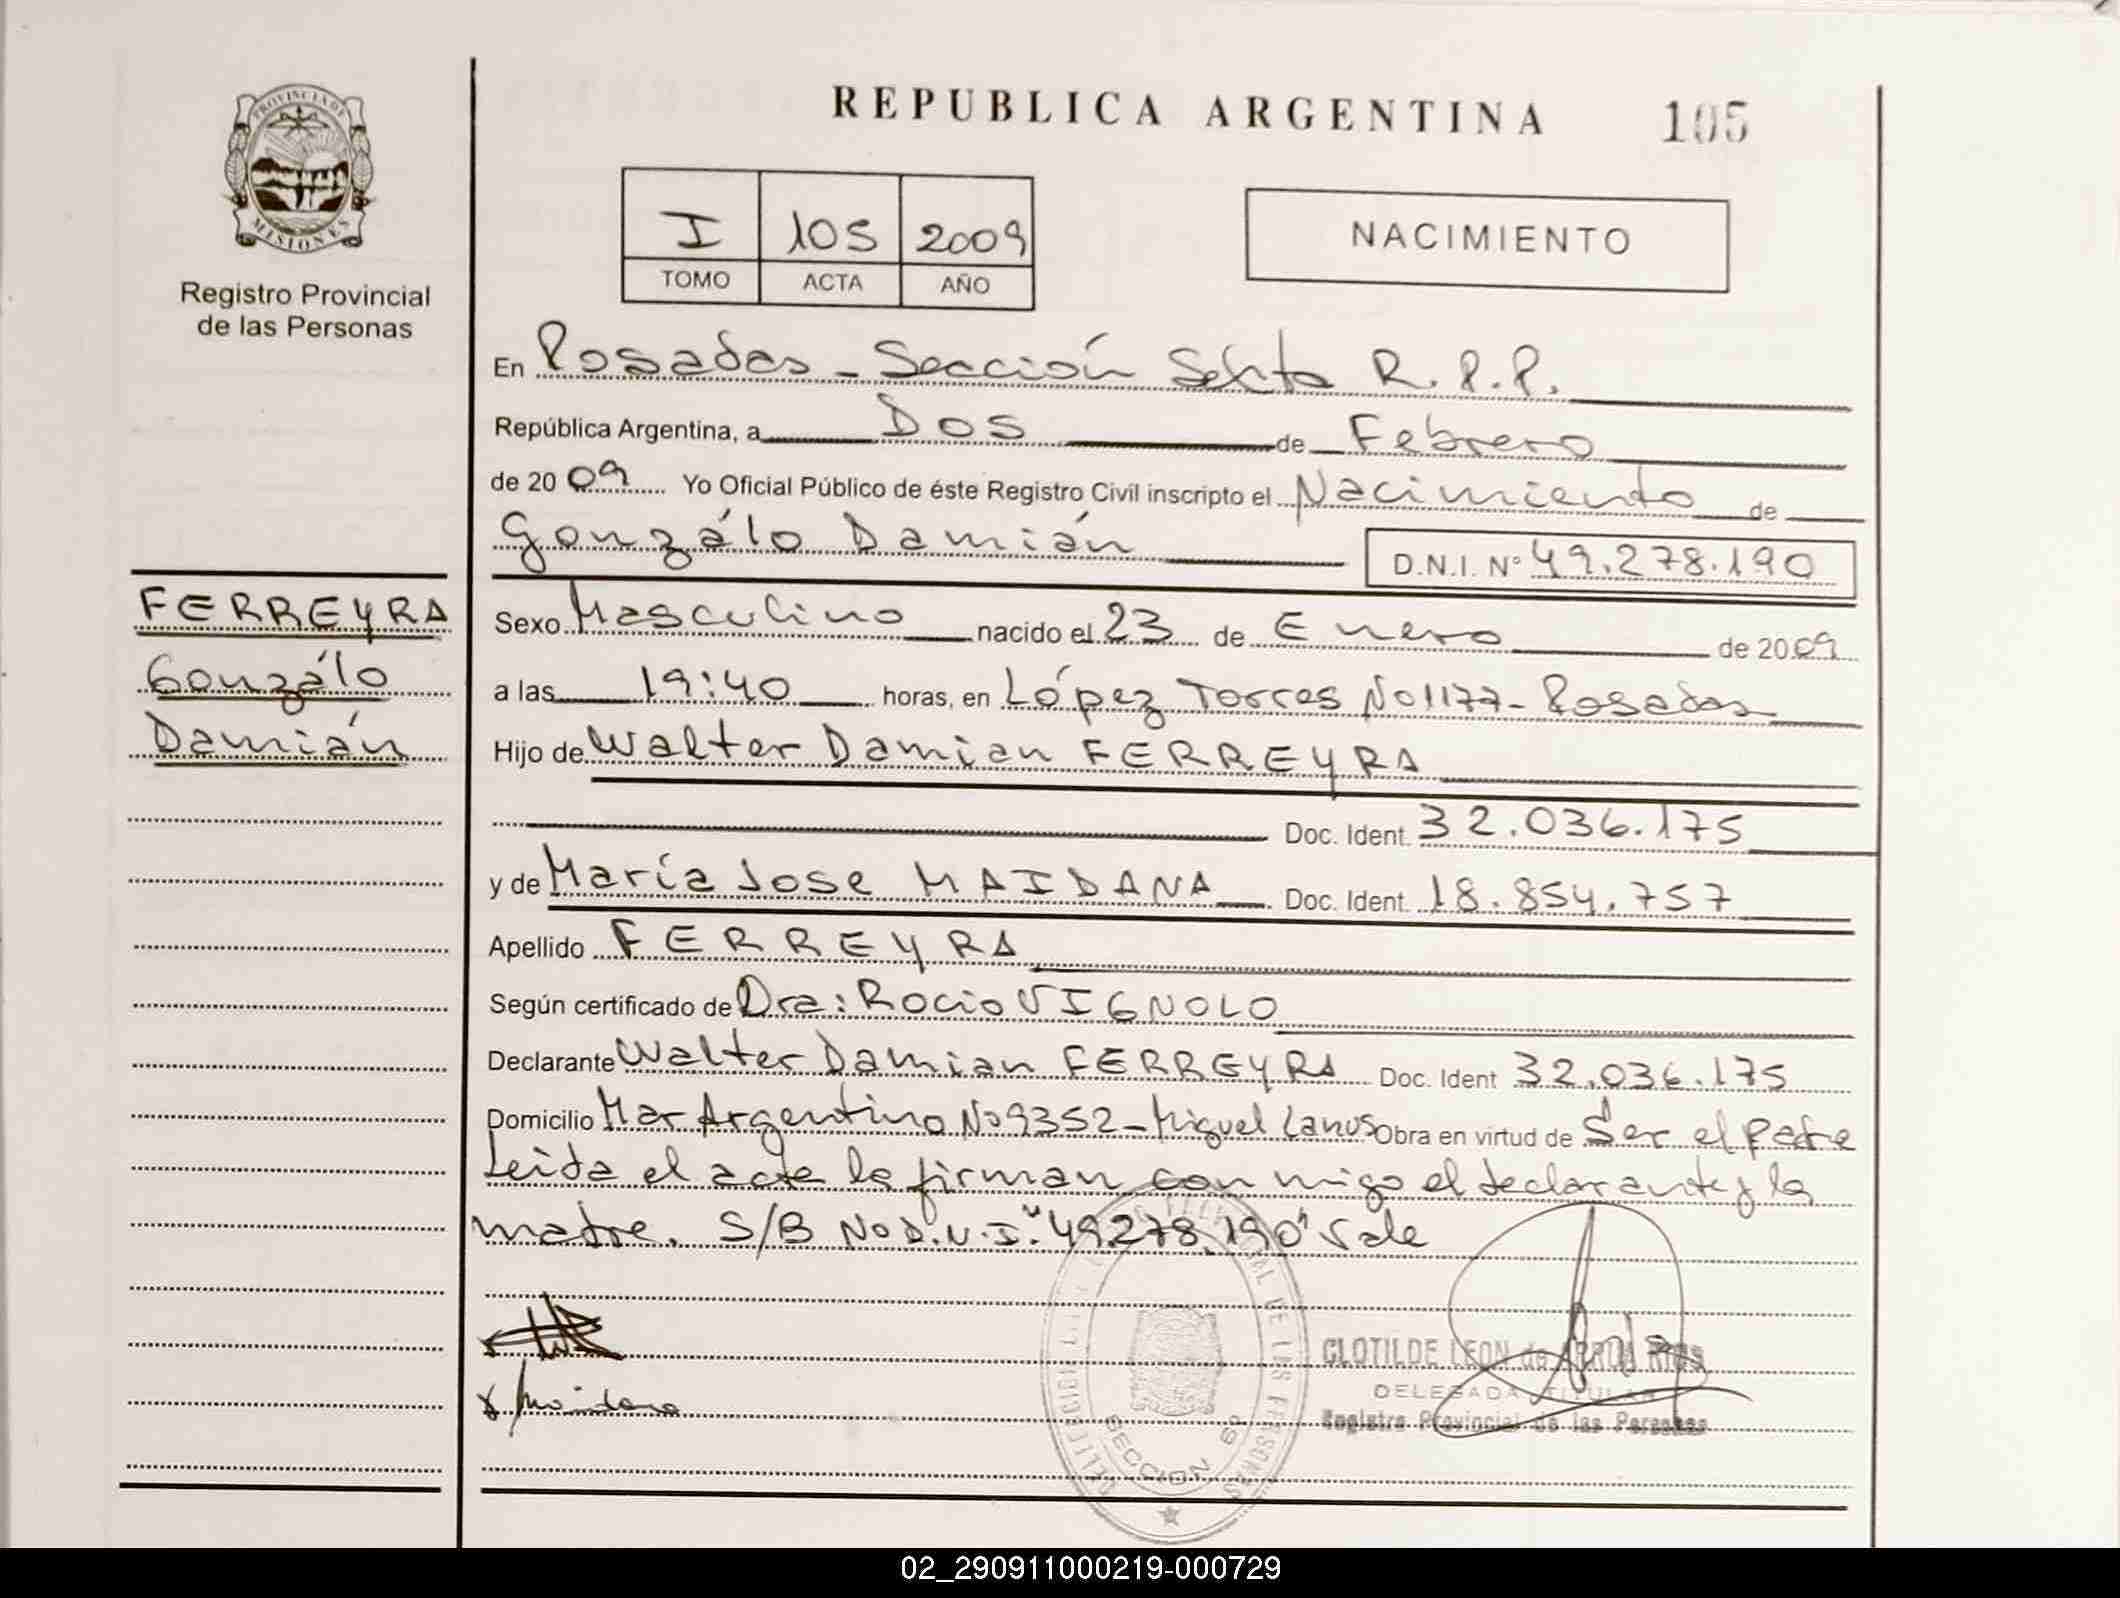 REPUBLICA ARGENTINA
105
PROVINCIA DE
MISIONES
Registro Provincial
de las Personas
I 105 2009
TOMO ACTA AÑO
NACIMIENTO
En Posadas - Sección Sexta R.P.P.
República Argentina, a Dos de Febrero
de 2009 Yo Oficial Público de éste Registro Civil inscripto el Nacimiento de
Gonzálo Damián D.N.I. Nº 49.278.190
FERREYRA
Gonzálo
Damián
Sexo Masculino nacido el 23 de Enero de 2009
a las 19:40 horas, en López Torres No 1177 - Posadas
Hijo de Walter Damian FERREYRA
Doc. Ident. 32.036.175
y de María Jose MAIDANA Doc. Ident. 18.854.757
Apellido FERREYRA
Según certificado de Dra: Rocio VIGNOLO
Declarante Walter Damian FERREYRA Doc. Ident 32.036.175
Domicilio Mar Argentino No 9352 - Miguel Lanus Obra en virtud de Ser el padre
Leida el acta la firman con migo el declarante y la
madre. S/B No D.N.I. "49.278.190" Vale
x Maidana
CLOTILDE LEON de ARRUA RIOS
DELEGADA TITULAR
Registro Provincial de las Personas
SECCION 6ª
02_290911000219-000729